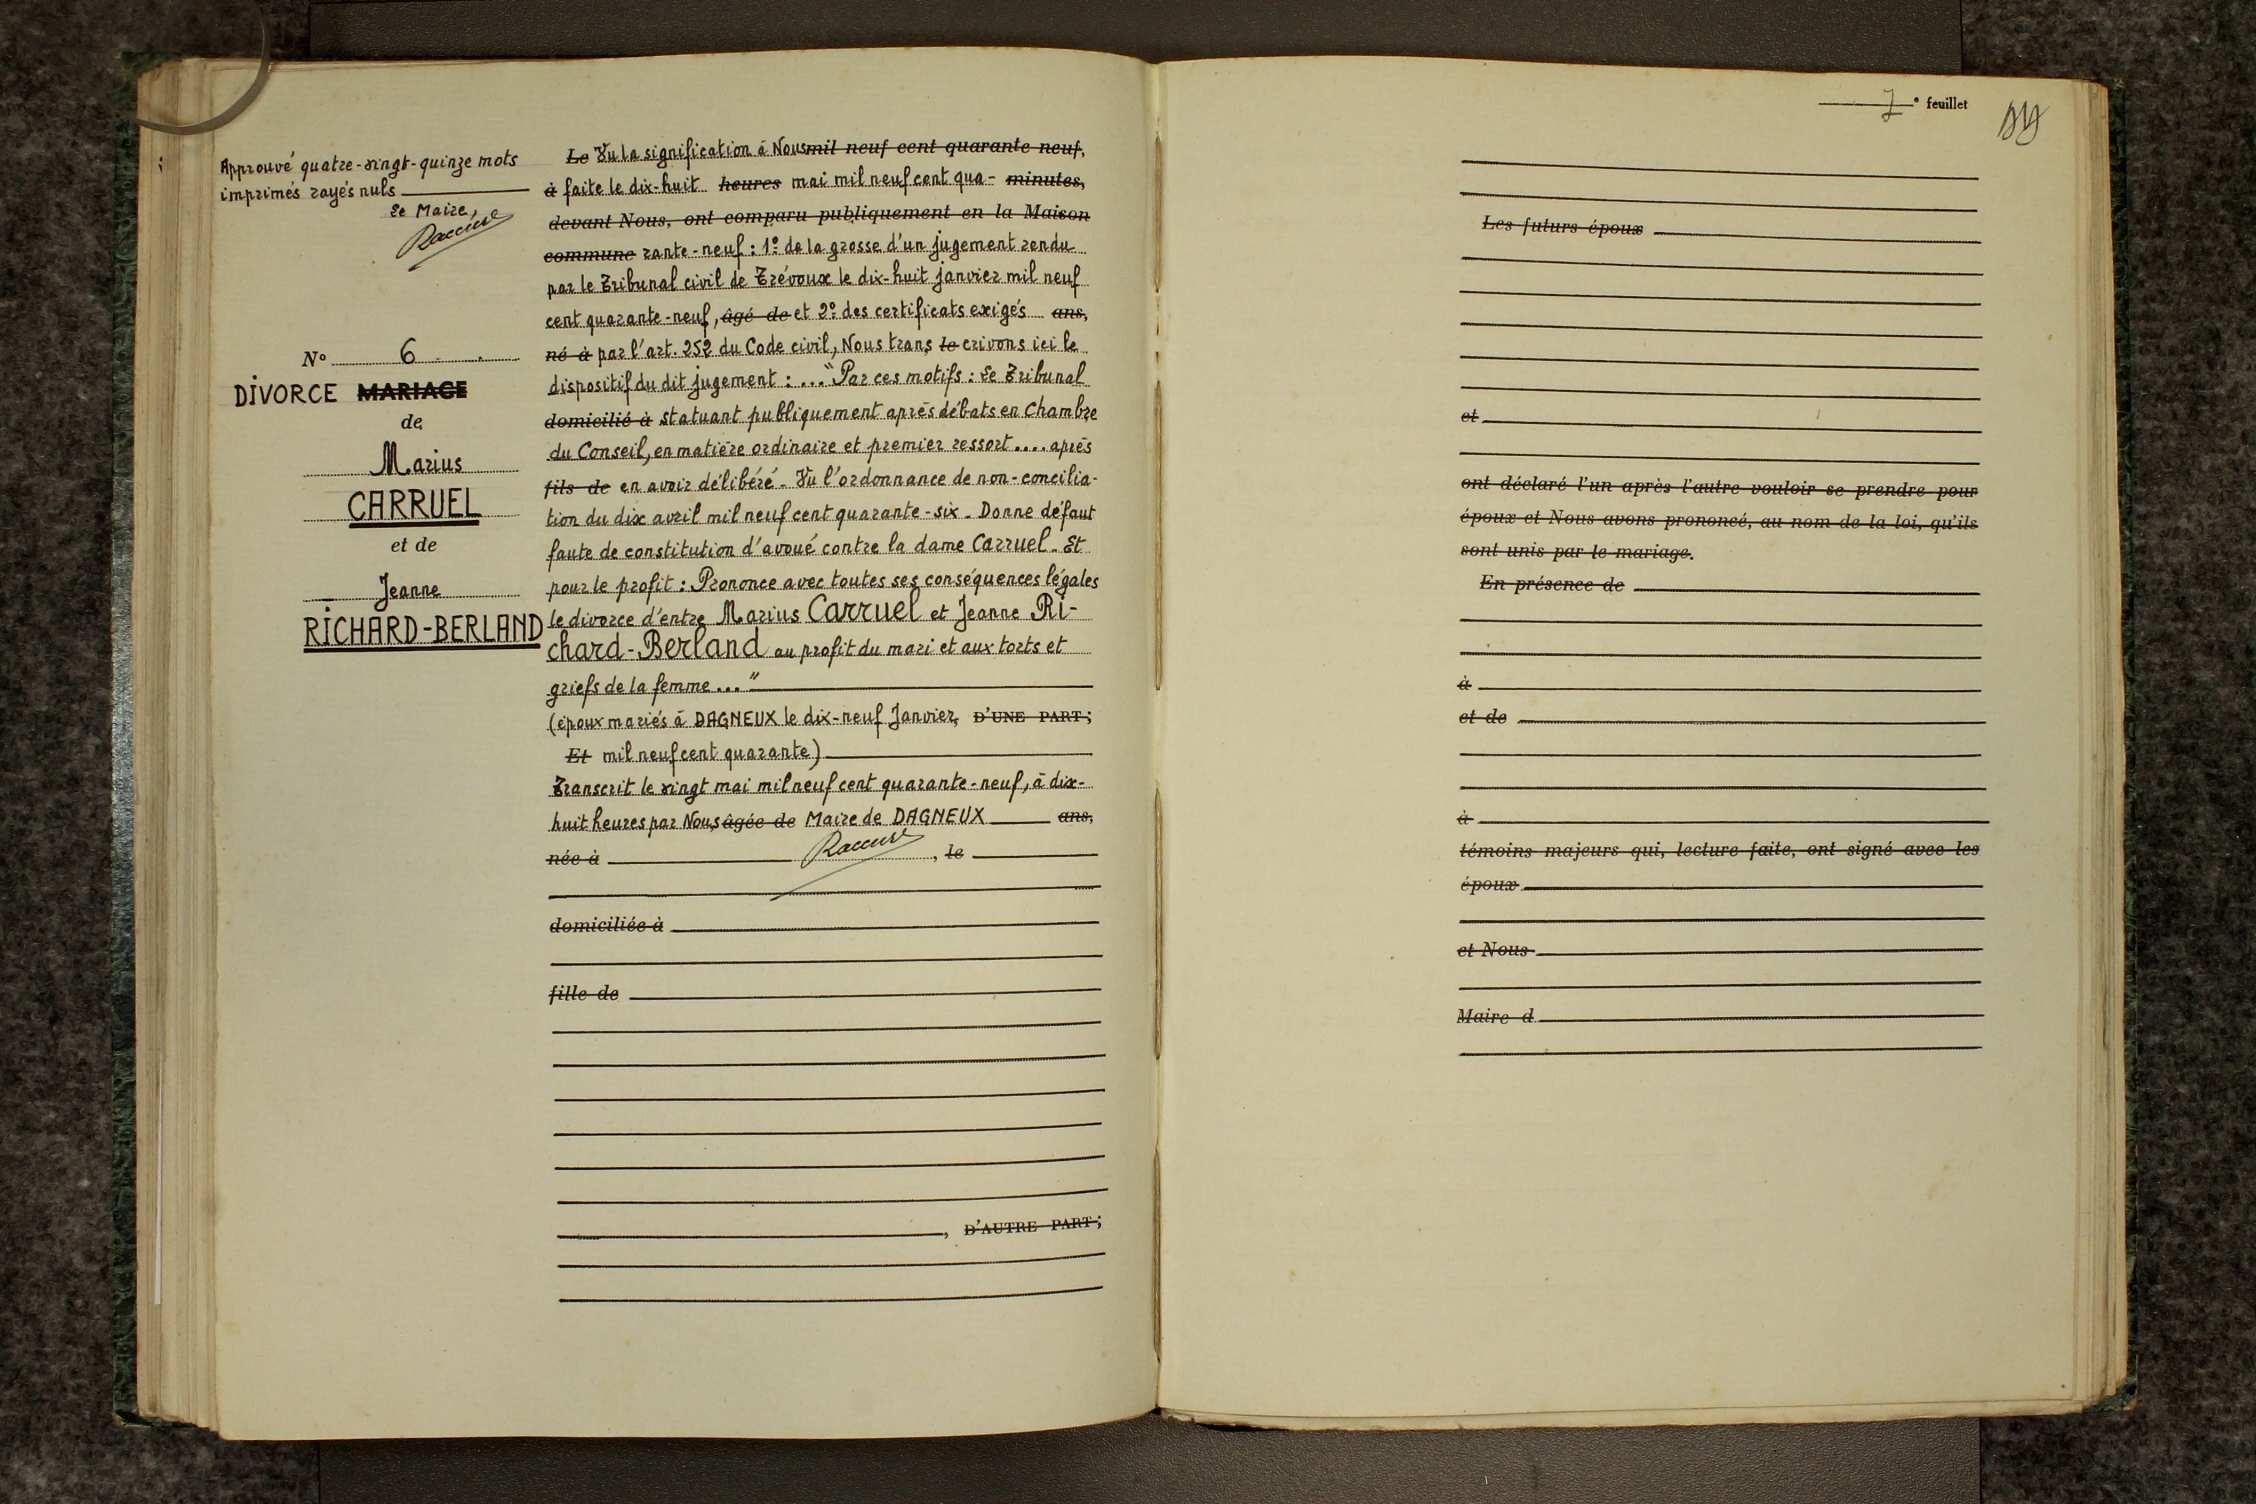 Approuvé quatre-vingt-quinze mots
imprimés rayés nuls
Le Maire,
Nº 6
DIVORCE MARIAGE
de
Marius
CARRUEL
et de
Jeanne
RICHARD-BERLAND
Le Vu la signification à Nous mil neuf cent quarante neuf,
à faite le dix-huit heures mai mil neuf cent qua- minutes,
devant Nous, ont comparu publiquement en la Maison
commune rante-neuf : 1º de la grosse d'un jugement rendu
par le Tribunal civil de Trévoux le dix-huit janvier mil neuf
cent quarante-neuf, âgé de et 2º des certificats exigés ans,
né à par l'art. 252 du Code civil, Nous trans le crivons ici le
dispositif du dit jugement : ... "Par ces motifs : Le Tribunal
domicilié à statuant publiquement après débats en Chambre
du Conseil, en matière ordinaire et premier ressort.... après
fils de en avoir délibéré - Vu l'ordonnance de non-concilia-
tion du dix avril mil neuf cent quarante-six - Donne défaut
faute de constitution d'avoué contre la dame Carruel - Et
pour le profit : Prononce avec toutes ses conséquences légales
le divorce d'entre Marius Carruel et Jeanne Ri-
chard-Berland au profit du mari et aux torts et
griefs de la femme ..."
(époux mariés à DAGNEUX le dix-neuf Janvier, D'UNE PART ;
Et mil neuf cent quarante)
Transcrit le vingt mai mil neuf cent quarante-neuf, à dix-
huit heures par Nous âgée de Maire de DAGNEUX ans,
née à , le
domiciliée à
fille de
, D'AUTRE PART ;
7 e feuillet
Les futurs époux
et
ont déclaré l'un après l'autre vouloir se prendre pour
époux et Nous avons prononcé, au nom de la loi, qu'ils
sont unis par le mariage.
En présence de
à
et de
à
témoins majeurs qui, lecture faite, ont signé avec les
époux
et Nous
Maire d